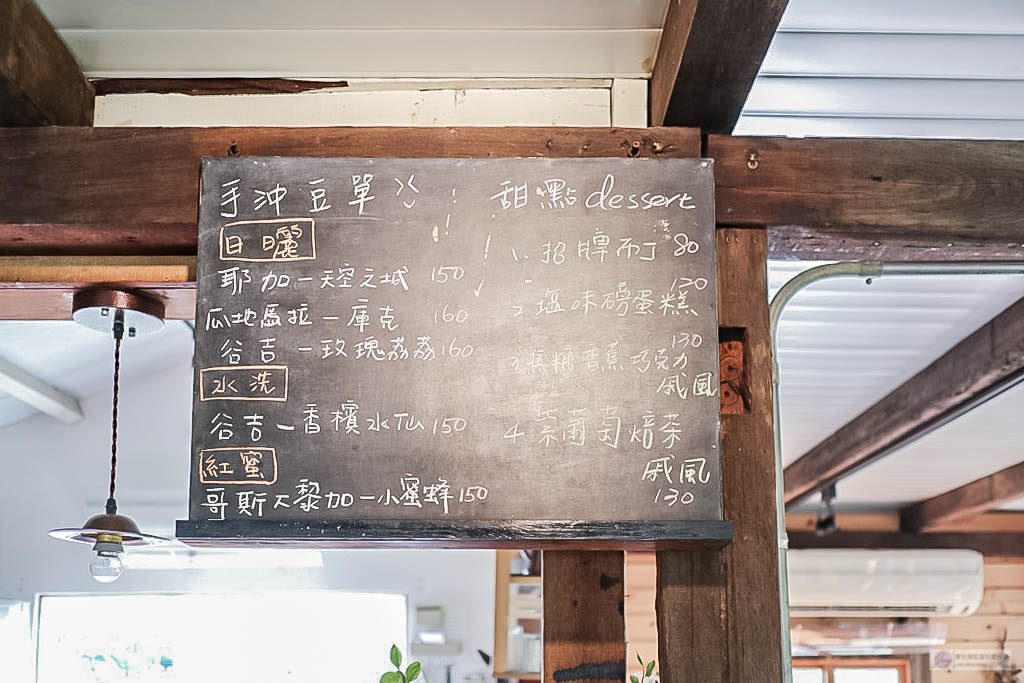 手沖豆單
日曬
耶加—天空之城 150
瓜地馬拉—庫克 160
谷吉—玫瑰荔荔 160
水洗
谷吉—香檳水仙 150
紅蜜
哥斯大黎加—小蜜蜂 150
甜點 dessert
1. 招牌布丁 80
2. 塩味磅蛋糕 120
3. 焦糖香蕉巧克力 130
戚風
4. 紫葡萄焙茶
戚風
130